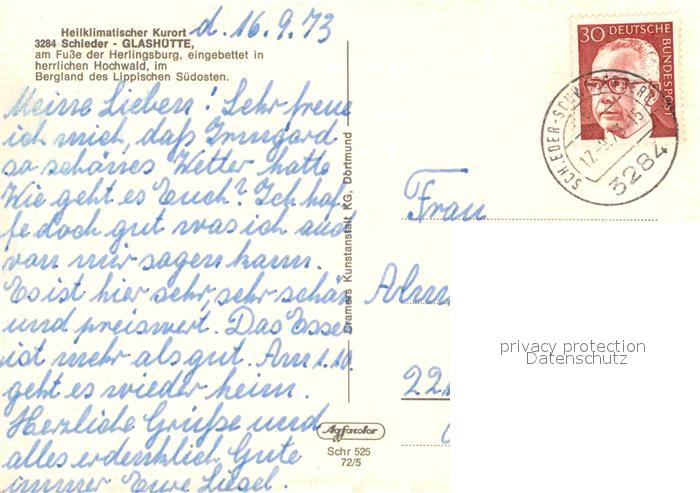 Heilklimatischer Kurort
3284 Schieder - GLASHÜTTE,
am Fuße der Herlingsburg, eingebettet in
herrlichen Hochwald, im
Bergland des Lippischen Südosten.
d. 16.9.73
Meine Lieben! Sehr freue
ich mich, daß Irmgard
so schönes Wetter hatte
Wie geht es Euch? Ich hof
fe doch gut was ich auch
von mir sagen kann.
Es ist hier sehr, sehr schön
und preiswert. Das Essen
ist mehr als gut. Am 1.10.
geht es wieder heim.
Herzliche Grüße und
alles erdenklich Gute
immer Eure Liesel.
Dramers Kunstanstalt KG, Dortmund
Agfacolor
Schr 525
72/5
30 DEUTSCHE
BUNDESPOST
SCHIEDER-SCHW
3284
Frau
221
privacy protection
Datenschutz